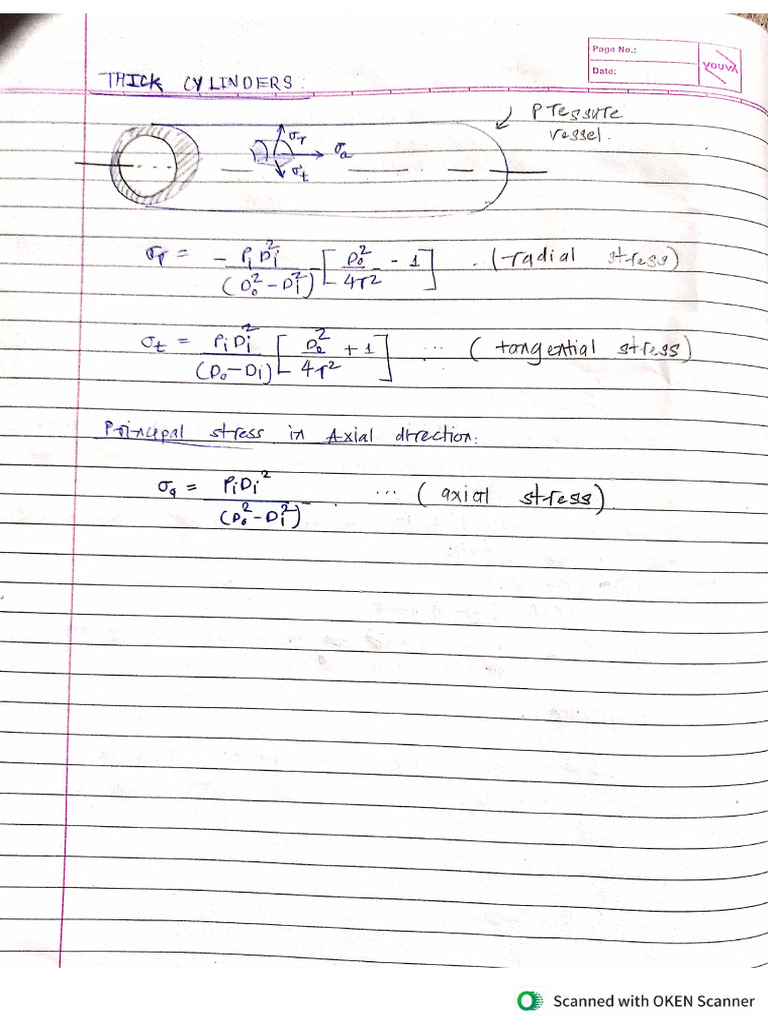 Page No.:
Date:
YOUVA
THICK CYLINDERS:
Pressure
vessel.
σr
σa
σt
σr = - PiDi² / (Do² - Di²) [ Do² / 4r² - 1 ] . (radial stress)
σt = PiDi² / (Do - Di) [ Do² / 4r² + 1 ] ... (tangential stress)
Principal stress in Axial direction:
σa = PiDi² / (Do² - Di²) . ... (axial stress).
Scanned with OKEN Scanner